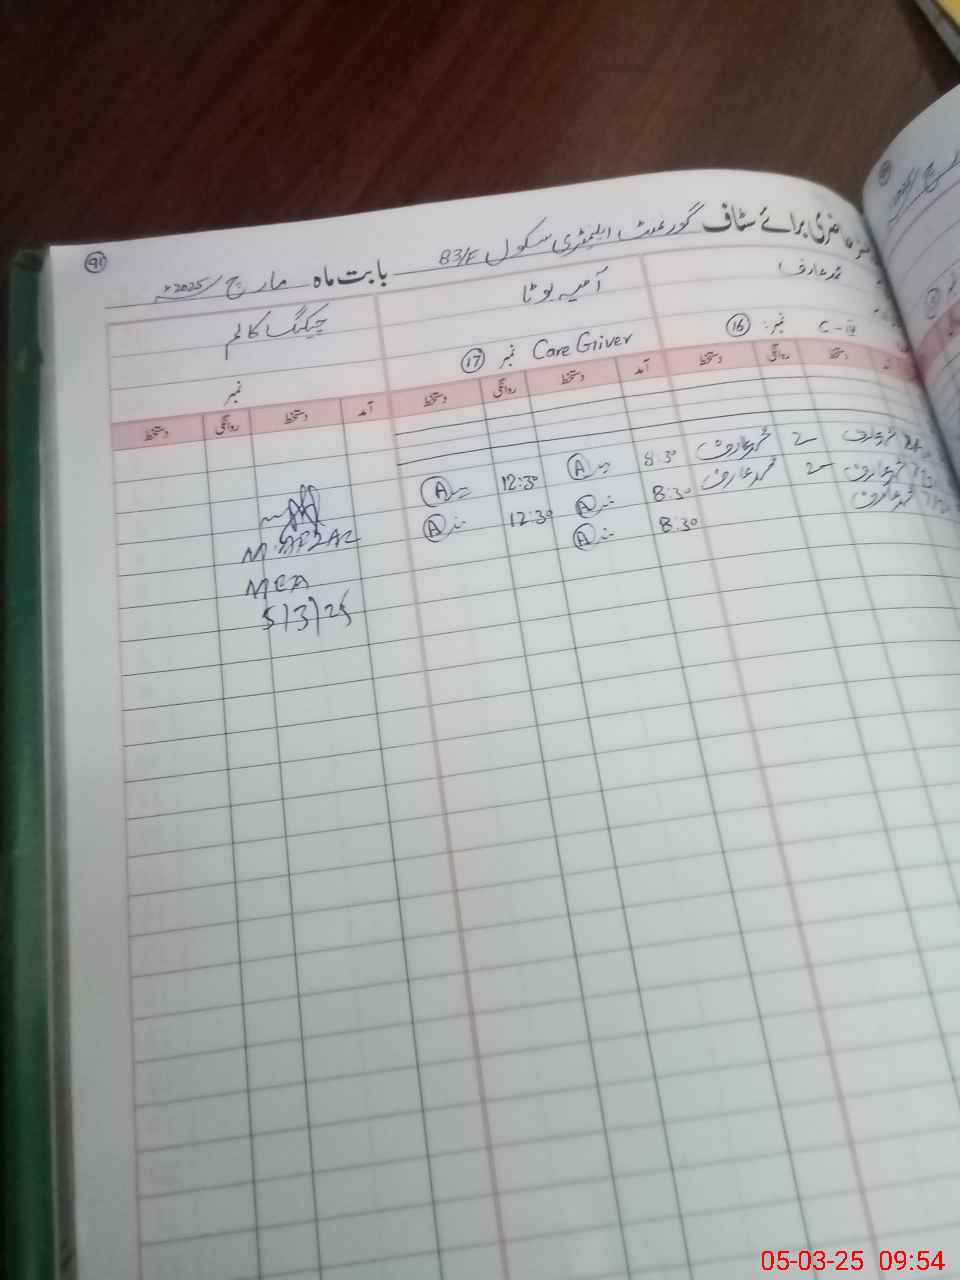 حاضری برائے سٹاف گورنمنٹ ایلیمنٹری سکول 83/F بابت ماہ مارچ 2025ء
91
محمد عارف
آسیہ بوٹا
چیکنگ کالم
C-IV نمبر: 16
Care Giver نمبر 17
نمبر
آمد دستخط روانگی دستخط آمد دستخط روانگی دستخط آمد دستخط روانگی دستخط
محمد عارف 2 محمد عارف 8:30 A 12:30 A
محمد عارف 2 محمد عارف 8:30 A 12:30 A
محمد عارف 8:30 A
M. AFZAL
MEA
5/3/25
05-03-25 09:54